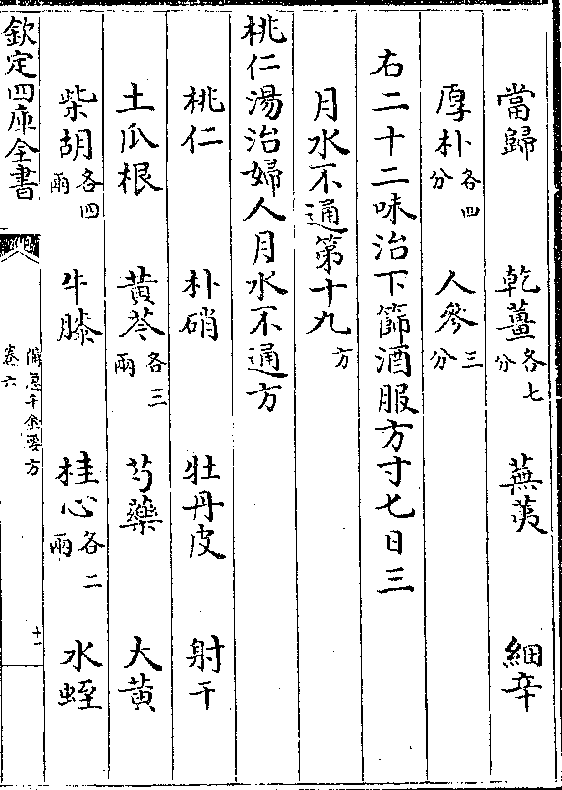 當歸 乾薑各七分 蕪荑 細辛
厚朴各四分 人參三分
右二十二味治下篩酒服方寸匕日三
月水不通第十九方
桃仁湯治婦人月水不通方
桃仁 朴硝 牡丹皮 射干
土瓜根 黃芩各三兩 芍藥 大黃
柴胡各四兩 牛膝 桂心各二兩 水蛭
欽定四庫全書
備急千金要方
卷六
十一